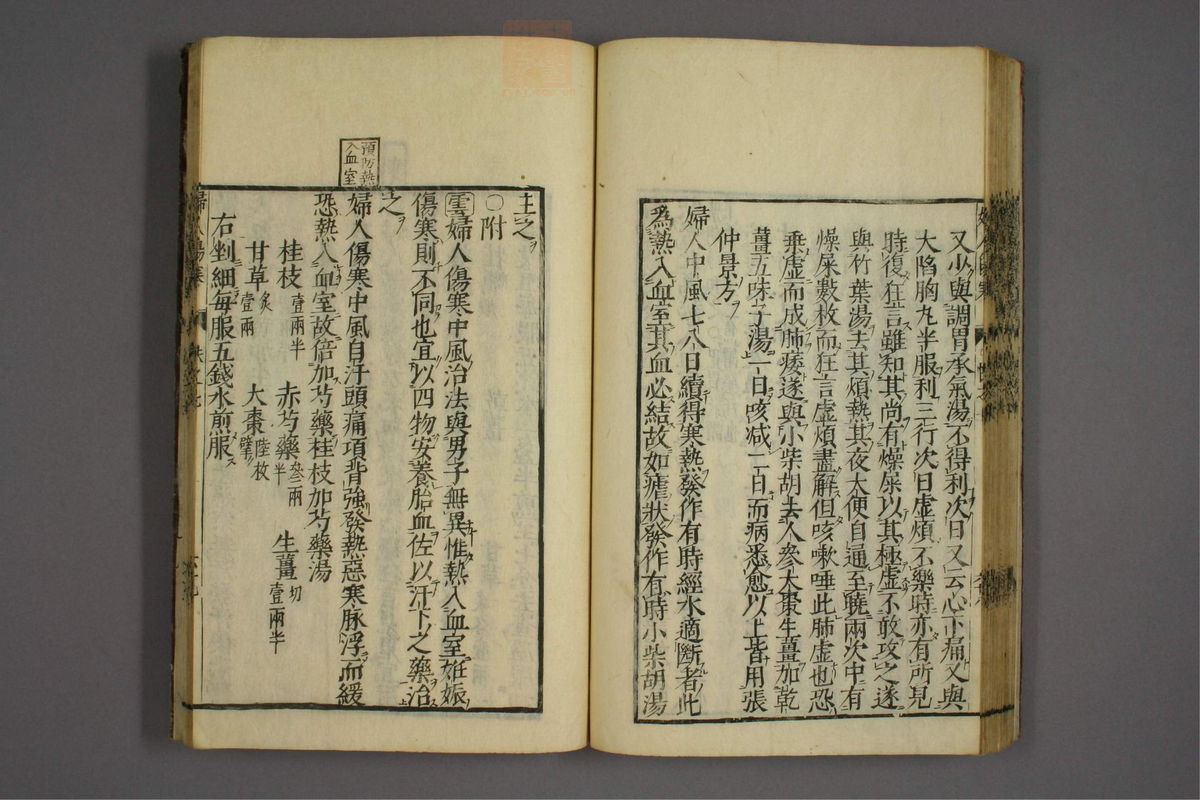 又少與調胃承氣湯不得利次日又云心下痛又與
大陷胸丸半服利三行次日虛煩不樂時亦有所見
時復狂言雖知其尚有燥屎以其極虛不敢攻之遂
與竹葉湯去其煩熱其夜大便自通至曉兩次中有
燥屎數枚而狂言虛煩盡解但咳嗽唾此肺虛也恐
乗虛而成肺痿遂與小柴胡去人參大棗生薑加乾
薑五味子湯一日咳减二日而病悉愈以上皆用張
仲景方
婦人中風七八日續得寒熱發作有時經水適斷者此
為熱入血室其血必結故如瘧狀發作有時小柴胡湯
主之
〇附
雲婦人傷寒中風治法與男子無異惟熱入血室姙娠
傷寒則不同也宜以四物安養胎血佐以汗下之藥治
之
預防熱
入血室
婦人傷寒中風自汗頭痛項背強發熱惡寒脉浮而緩
恐熱入血室故倍加芍藥桂枝加芍藥湯
桂枝壹兩半 赤芍藥叄兩半 生薑切壹兩半
甘草炙壹兩 大棗陸枚擘
右剉細每服五錢水煎服